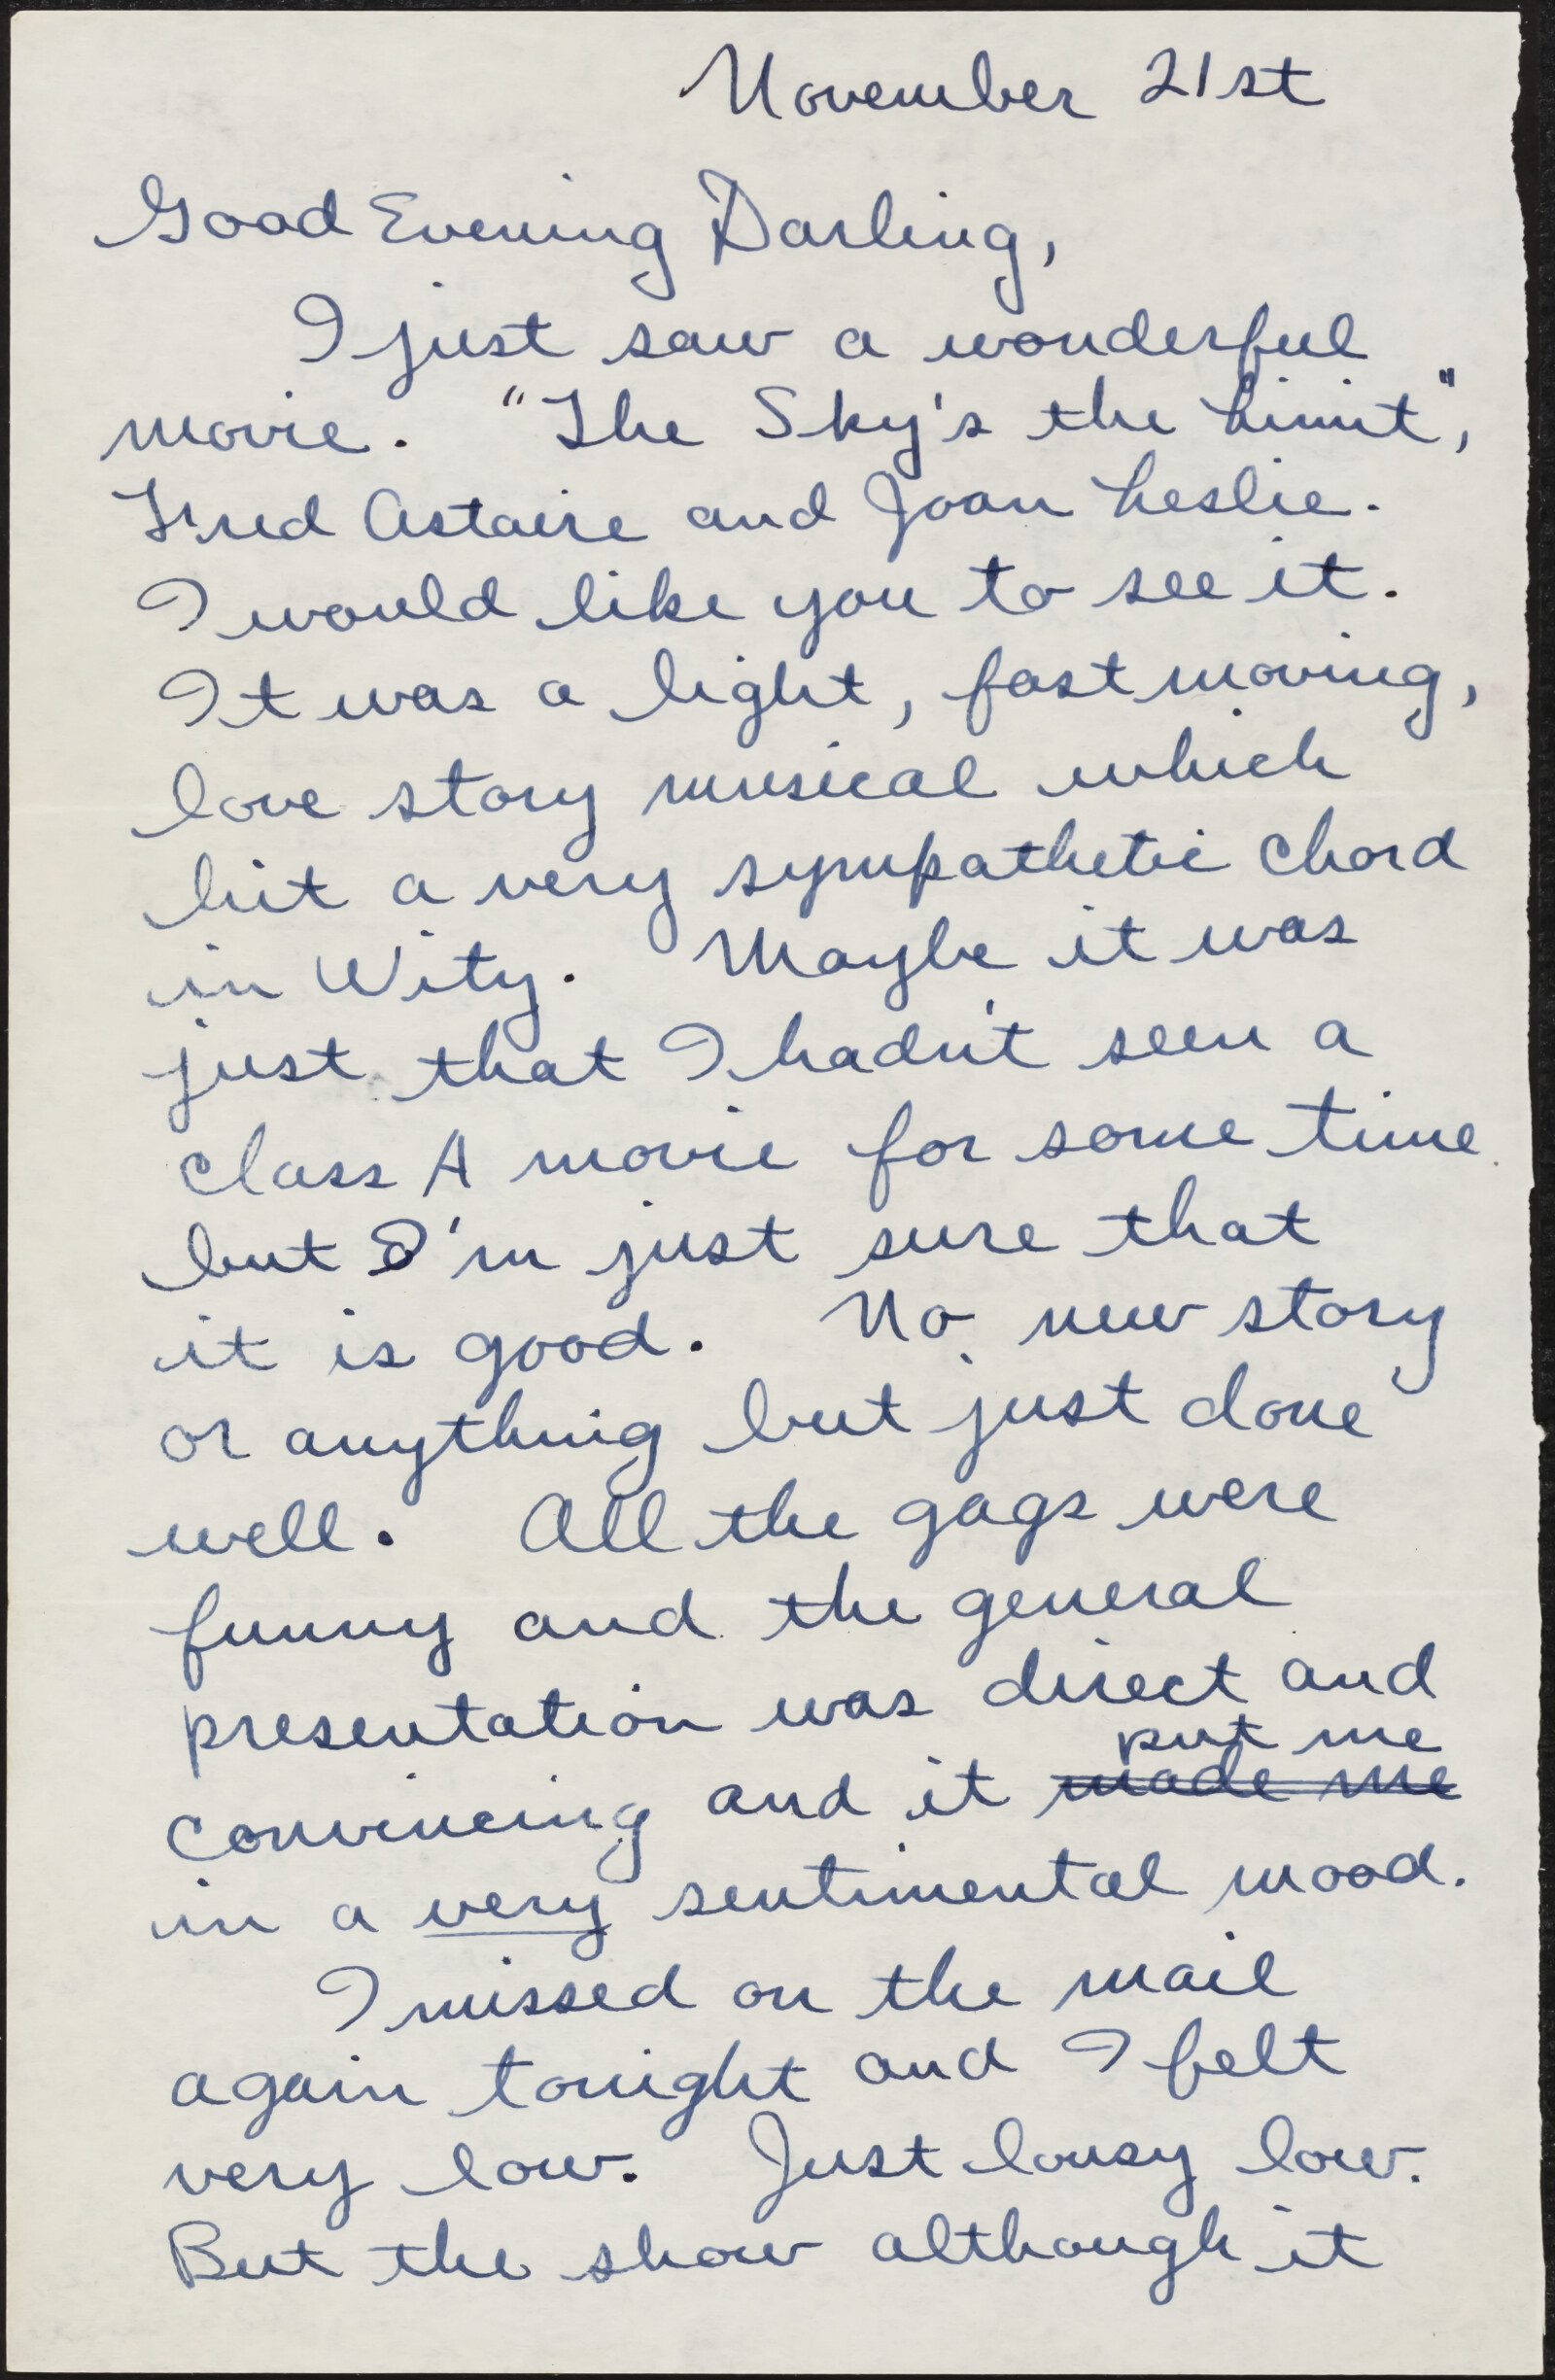 November 21st
Good Evening Darling,
I just saw a wonderful
movie. "The Sky's the Limit",
Fred Astaire and Joan Leslie.
I would like you to see it.
It was a light, fast moving,
love story musical which
hit a very sympathetic chord
in Wity. Maybe it was
just that I hadn't seen a
class A movie for some time
but I'm just sure that
it is good. No new story
or anything but just done
well. All the gags were
funny and the general
presentation was direct and
put me
convincing and it made me
in a very sentimental mood.
I missed on the mail
again tonight and I felt
very low. Just lousy low.
But the show although it